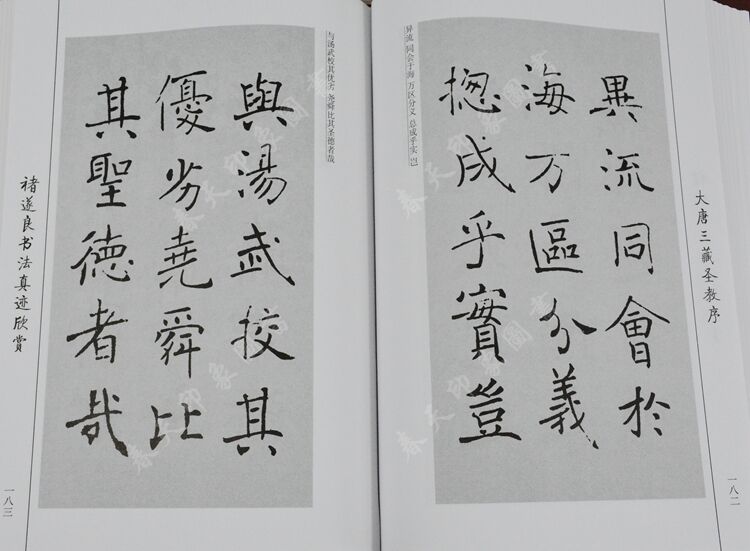 大唐三藏圣教序
一八二
異流同會於
海万區分義
揔成乎實豈
异流 同会于海 万区分义 总成乎实 岂
与汤武校其优劣 尧舜比其圣德者哉
與湯武挍其
優劣堯舜比
其聖德者哉
褚遂良书法真迹欣赏
一八三
春天印象圖書
春天印象圖書